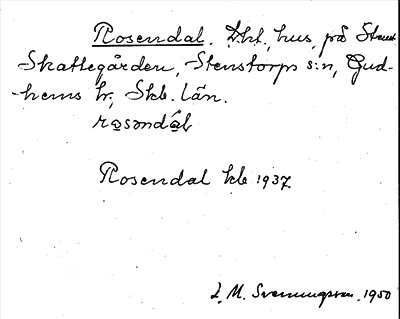 Rosendal. Dht, hus, på Stens
Skattegården, Stenstorps s:n, Gud-
-hems hr, Skb. län.
rosəndàl
Rosendal kb 1937
L. M. Svenungsson. 1950